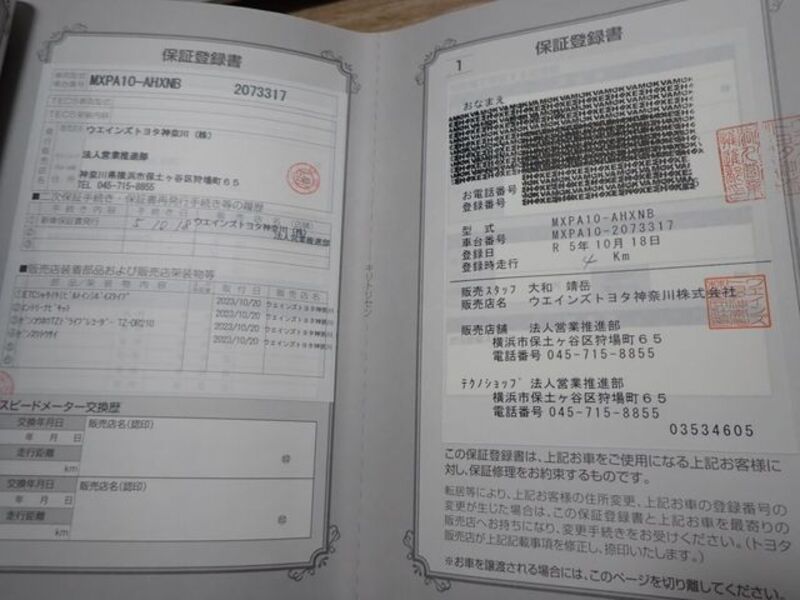 保証登録書
MXPA10-AHXNB
2073317
ウエインズトヨタ神奈川(株)
法人営業推進部
神奈川県横浜市保土ヶ谷区狩場町65
TEL 045-715-8855
■二次保証手続き・保証書再発行手続き等の履歴
手続き内容 手続き日 販売店名
新車保証書発行 5 10 18 ウエインズトヨタ神奈川(株)
法人営業推進部
■販売店装着部品および販売店架装物等
部品・架装物内容 取付日 販売店名
2023/10/20 ウエインズトヨタ神奈川
2023/10/20 ウエインズトヨタ神奈川
TZ-DR210 2023/10/20 ウエインズトヨタ神奈川
2023/10/20 ウエインズトヨタ神奈川
スピードメーター交換歴
交換年月日 販売店名(認印)
年 月 日
走行距離
km
交換年月日 販売店名(認印)
年 月 日
走行距離
km
キリトリセン
保証登録書
1
おなまえ
お電話番号
登録番号
型式 MXPA10-AHXNB
車台番号 MXPA10-2073317
登録日 R 5年10月18日
登録時走行 4 Km
販売スタッフ 大和 靖岳
販売店名 ウエインズトヨタ神奈川株式会社
販売店舗 法人営業推進部
横浜市保土ヶ谷区狩場町65
電話番号 045-715-8855
テクノショップ 法人営業推進部
横浜市保土ヶ谷区狩場町65
電話番号 045-715-8855
03534605
この保証登録書は、上記お車をご使用になる上記お客様に
対し、保証修理をお約束するものです。
転居等により、上記お客様の住所変更、上記お車の登録番号の
変更が生じた場合は、この保証登録書と上記お車を最寄りの
販売店へお持ちになり、変更手続きをお受けください。(トヨタ
販売店が上記記載事項を修正し、捺印いたします。)
※お車を譲渡される場合には、このページを切り離してください。